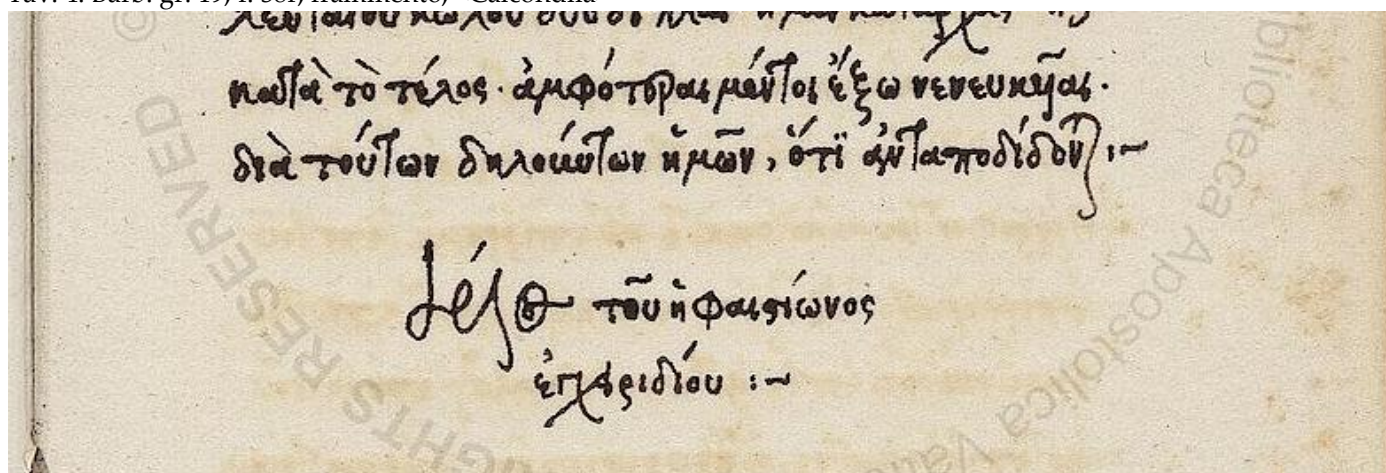 κατὰ τὸ τέλος· ἀμφότεραι μέντοι ἔξω νενευκυῖαι·
διὰ τούτων δηλούντων ἡμῶν, ὅτϊ ἀνταποδίδονται :~
τέλος τοῦ ἡφαιστίωνος
ἐγχειριδίου :~
RIGHTS RESERVED ©
Biblioteca Apostolica